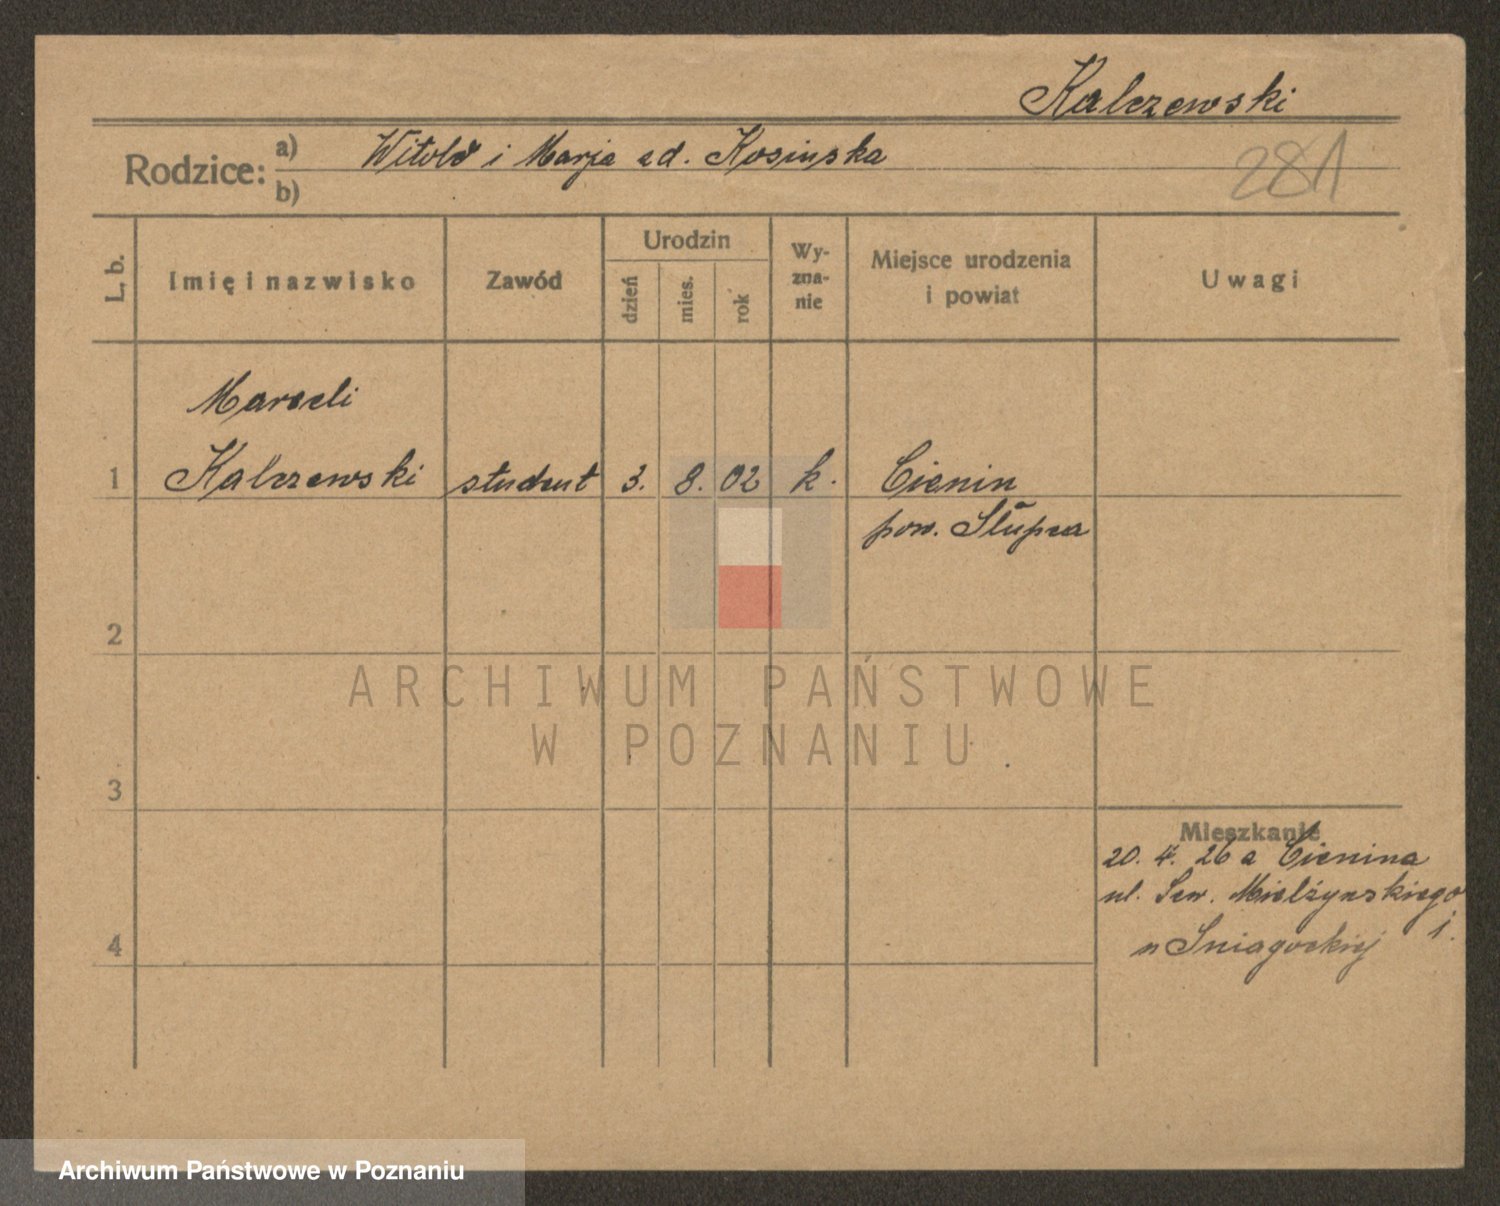 Kalczewski
Rodzice:
a) Witold i Marja zd. Kosinska
b)
281
L. b.
Imię i nazwisko
Zawód
Urodzin
dzień
mies.
rok
Wy-
zna-
nie
Miejsce urodzenia
i powiat
Uwagi
Marceli
1 Kalczewski student 3. 8. 02 k. Cienin
pow. Słupca
2
3
4
Mieszkanie
20. 4. 26 z Cienina
ul. Sew. Mielżynskiego
u Sniagockiej
ARCHIWUM PAŃSTWOWE
W POZNANIU
Archiwum Państwowe w Poznaniu